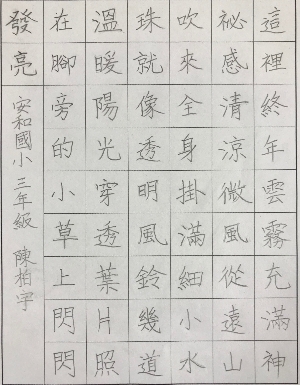 這裡終年雲霧充滿神
祕感清涼微風從遠山
吹來全身掛滿細小水
珠就像透明風鈴幾道
溫暖陽光穿透葉片照
在腳旁的小草上閃閃
發亮
安和國小 三年級 陳柏宇